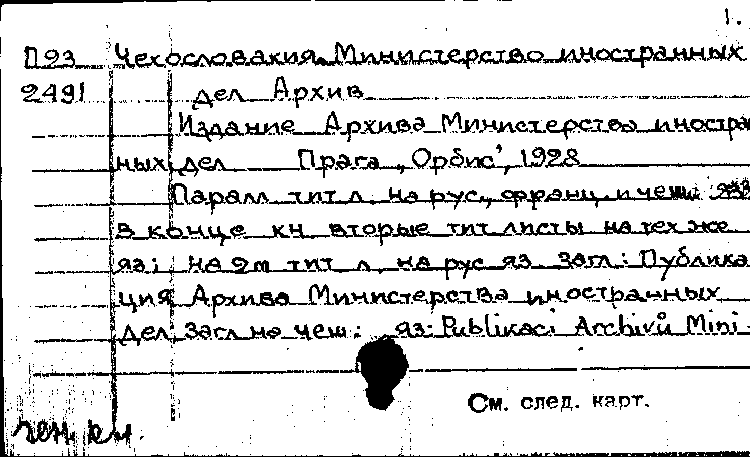 1.
П23 Чехословакия. Министерство иностранных
2491 дел Архив
Издание Архива Министерства иностран
ных дел Прага „Орбис", 1928
Паралл. тит. л. на рус., франц. и чеш.
в конце кн. вторые тит листы на тех же
яз; на 2м тит л. на рус яз. загл: Публика
ция Архива Министерства иностранных
дел, загл на чеш: яз: Publikací Archivů Mini-
См. след. карт.